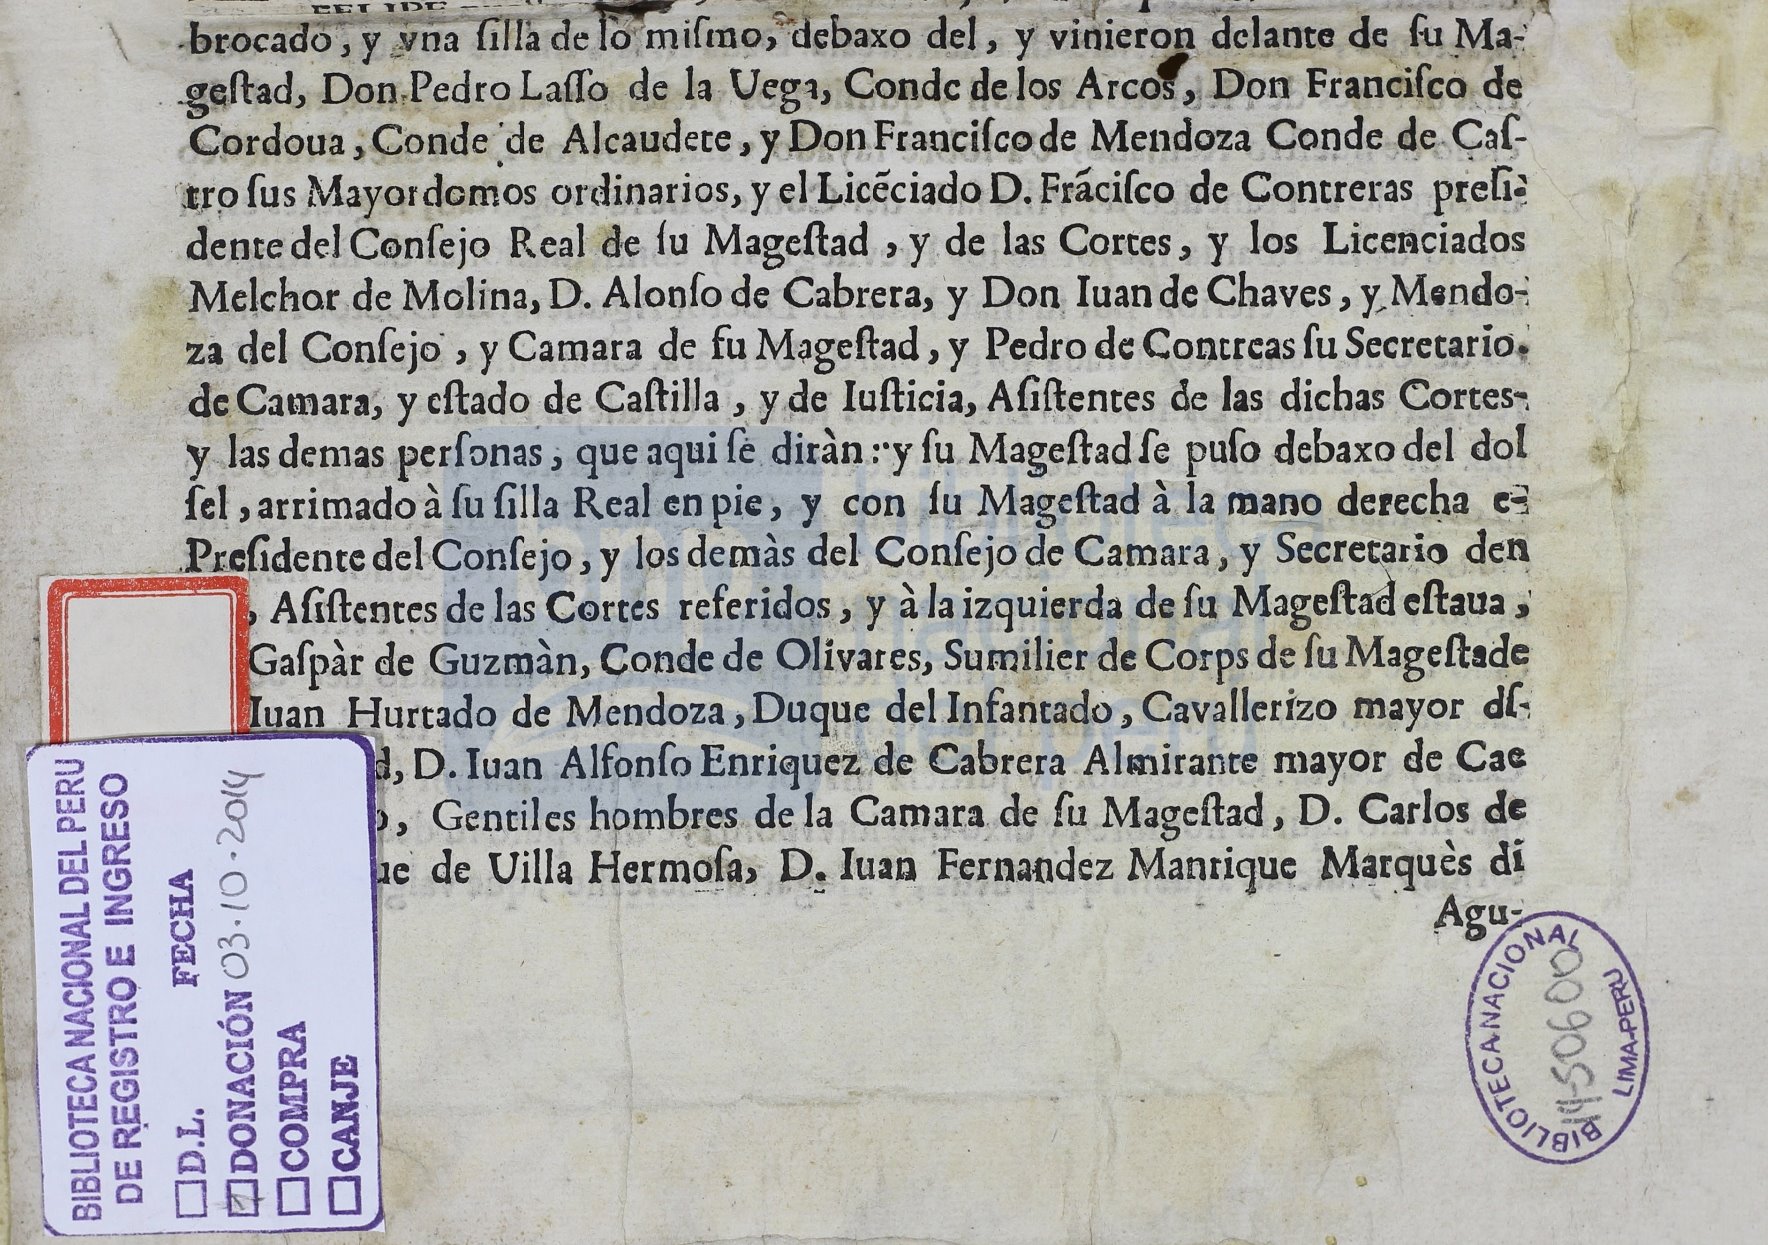 brocado, y vna ſilla de lo miſmo, debaxo del, y vinieron delante de ſu Ma-
geſtad, Don Pedro Laſſo de la Uega, Conde de los Arcos, Don Franciſco de
Cordoua, Conde de Alcaudete, y Don Franciſco de Mendoza Conde de Caſ-
tro ſus Mayordomos ordinarios, y el Licẽciado D. Frãciſco de Contreras preſi-
dente del Conſejo Real de ſu Mageſtad, y de las Cortes, y los Licenciados
Melchor de Molina, D. Alonſo de Cabrera, y Don Iuan de Chaves, y Mendo-
za del Conſejo, y Camara de fu Mageſtad, y Pedro de Contreas ſu Secretario.
de Camara, y eſtado de Caſtilla, y de Iuſticia, Aſiſtentes de las dichas Cortes-
y las demas perſonas, que aqui ſe diràn: y ſu Mageſtad ſe puſo debaxo del dol
ſel, arrimado à ſu ſilla Real en pie, y con ſu Mageſtad à la mano derecha e-
Preſidente del Conſejo, y los demàs del Conſejo de Camara, y Secretario den
, Aſiſtentes de las Cortes referidos, y à la izquierda de ſu Mageſtad eſtaua,
Gaſpàr de Guzmàn, Conde de Olivares, Sumilier de Corps de ſu Mageſtade
Iuan Hurtado de Mendoza, Duque del Infantado, Cavallerizo mayor dſ-
d, D. Iuan Alfonſo Enriquez de Cabrera Almirante mayor de Cae
o, Gentiles hombres de la Camara de ſu Mageſtad, D. Carlos de
ue de Uilla Hermoſa, D. Iuan Fernandez Manrique Marquès di
Agu-
BIBLIOTECA NACIONAL DEL PERU
DE REGISTRO E INGRESO
FECHA
D.L.
DONACIÓN 03.10.2014
COMPRA
CANJE
BIBLIOTECA NACIONAL
LIMA-PERU
biblioteca
nacional
del perú